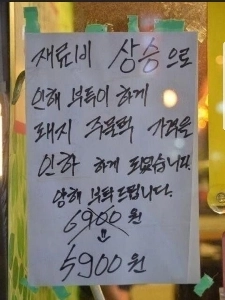 재료비 상승으로
인해 부득이 하게
돼지 주물럭 가격을
인하 하게 되었습니다.
양해 부탁드립니다.
6900원
⇓
5900원